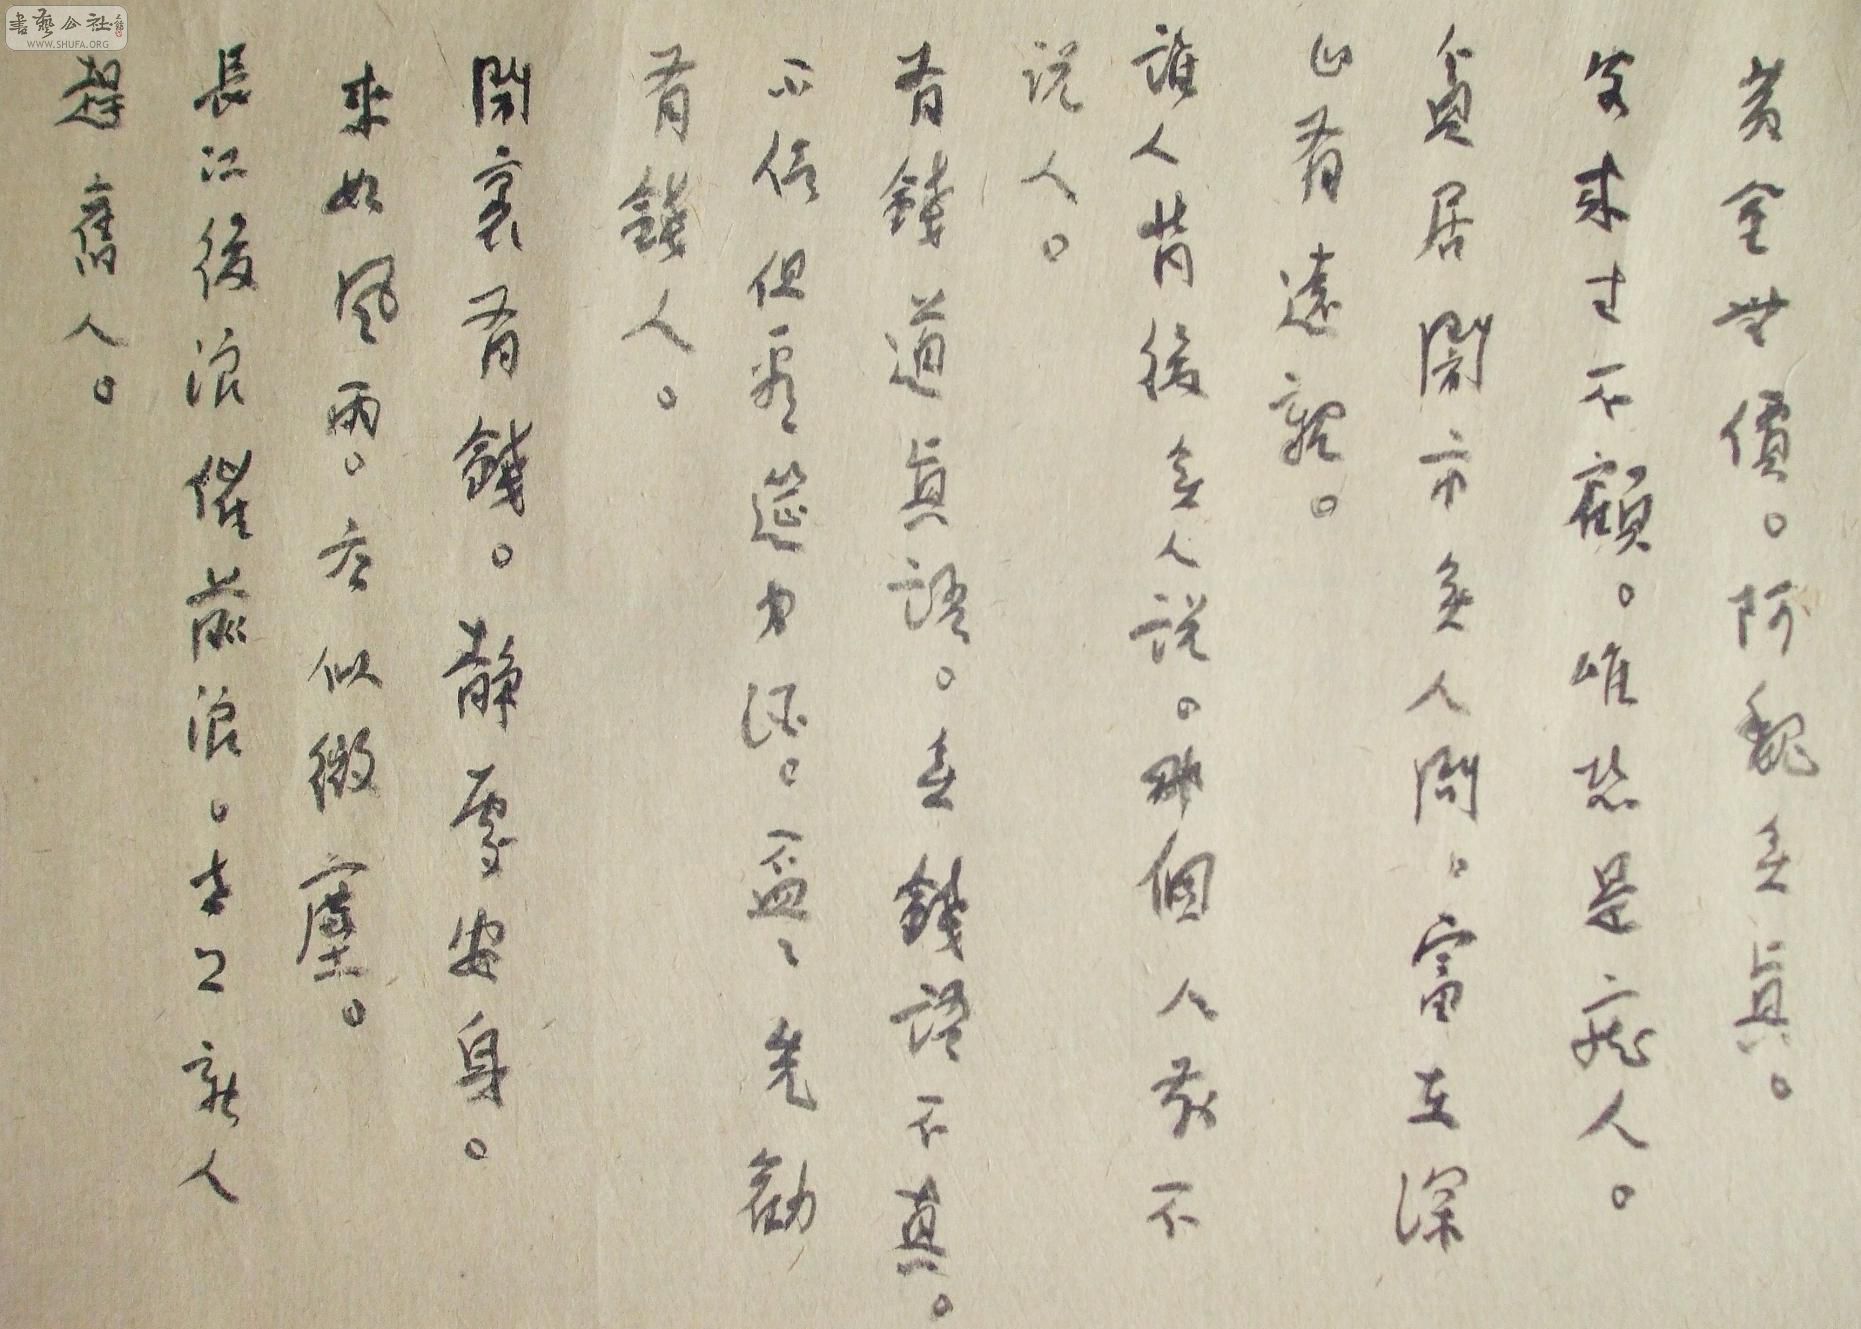 黄金無價。阿魏無真。
客來主不顧。唯恐是癡人。
貧居鬧市無人問。富在深
山有遠親。
誰人背後無人説。那個人前不
説人。
有錢道真語。無錢語不真。
不信但看筵中酒。盃々先勸
有錢人。
鬧裏有錢。静處安身。
來如風雨。去似微塵。
長江後浪催前浪。世上新人
趕舊人。
書藝公社
WWW.SHUFA.ORG